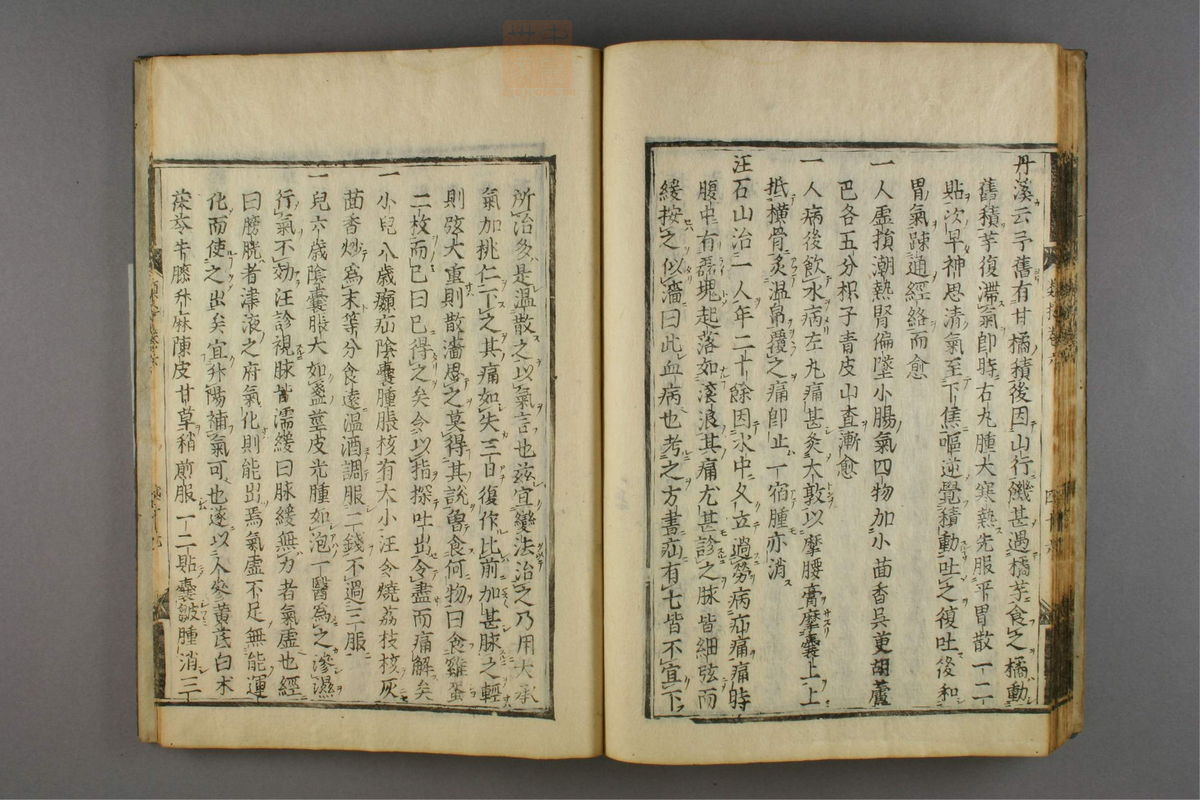 丹溪云予舊有甘橘積後因山行饑甚過橘芋食之橘動
舊積芋復滯氣即時右丸腫大寒熱先服平胃散一二
貼次早神思清氣至下焦嘔逆覺積動吐之復吐後和
胃氣疎通經絡而愈
一人虛損潮熱腎偏墜小腸氣四物加小茴香吳茰胡蘆
巴各五分枳子青皮山査漸愈
一人病後飲水病左丸痛甚灸大敦以摩腰膏摩囊上上
抵橫骨炙温帛覆之痛即止一宿腫亦消
汪石山治一人年二十餘因水中久立過勞病疝痛痛時
腹中有磊塊起落如滾浪其痛尤甚診之脉皆細弦而
緩按之似濇曰此血病也考之方書疝有七皆不宜下
所治多是温散之以氣言也茲宜變法治之乃用大承
氣加挑仁下之其痛如失三日復作比前加甚脉之輕
則弦大重則散濇思之莫得其說曾食何物曰食雞蛋
二枚而已曰已得之矣令以指探吐出令盡而痛解矣
一小兒八歲㿗疝陰囊腫脹核有大小汪令燒荔枝核灰
茴香炒爲末等分食遠温酒調服二錢不過三服
一兒六歲陰囊脹大如盞莖皮光腫如泡一醫爲之滲濕
行氣不効汪診視脉皆濡緩曰脉緩無力者氣虛也經
曰膀胱者津液之府氣化則能出焉氣虛不足無能運
化而使之出矣宜升陽補氣可也遂以人參黃芪白朮
茯苓牛膝升麻陳皮甘草稍煎服一二貼囊皺腫消三